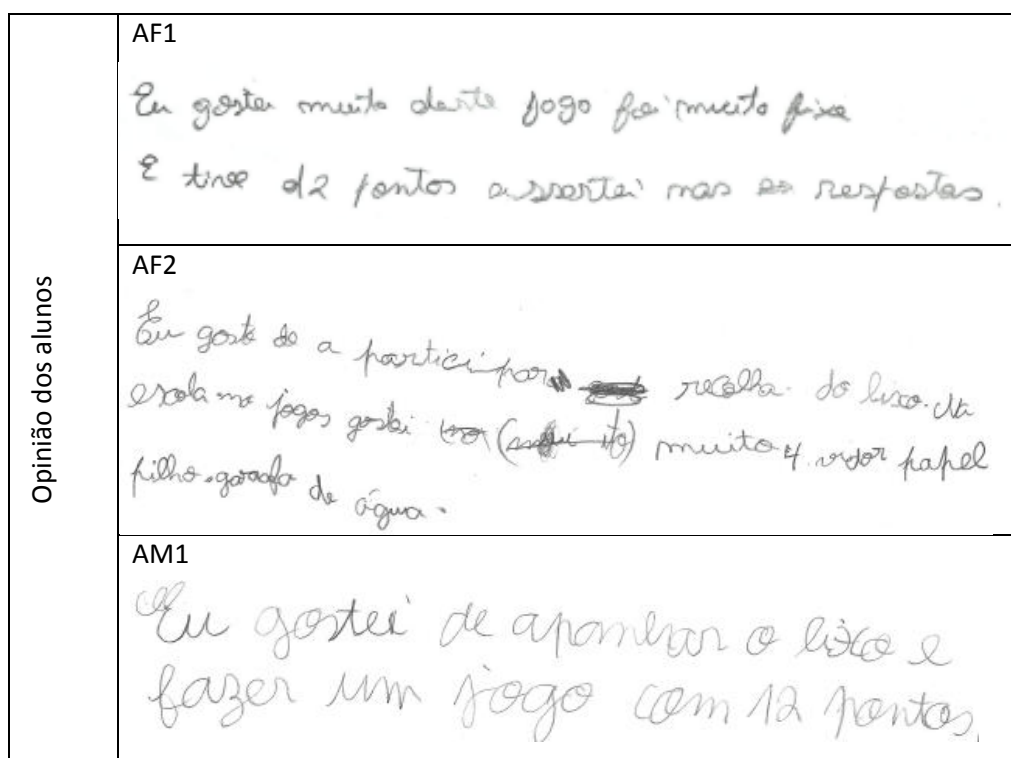 Opinião dos alunos
AF1
Eu gostei muito deste jogo foi muito fixe
E tiree 12 pontos assertei nas as respostas.
AF2
Eu gost de a participar recolha do lixo. Na
escola no jogos gostei (muito) muito papel
pilho. garafa de água.
AM1
Eu gostei de apanhar o lixo e
fazer um jogo com 12 pontos.